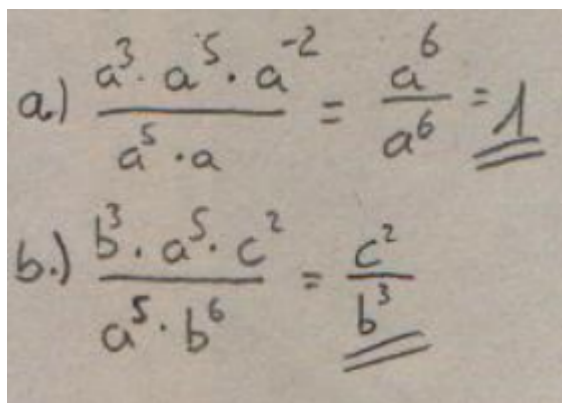 a.) a³ · a⁵ · a⁻² / a⁵ · a = a⁶ / a⁶ = 1
b.) b³ · a⁵ · c² / a⁵ · b⁶ = c² / b³